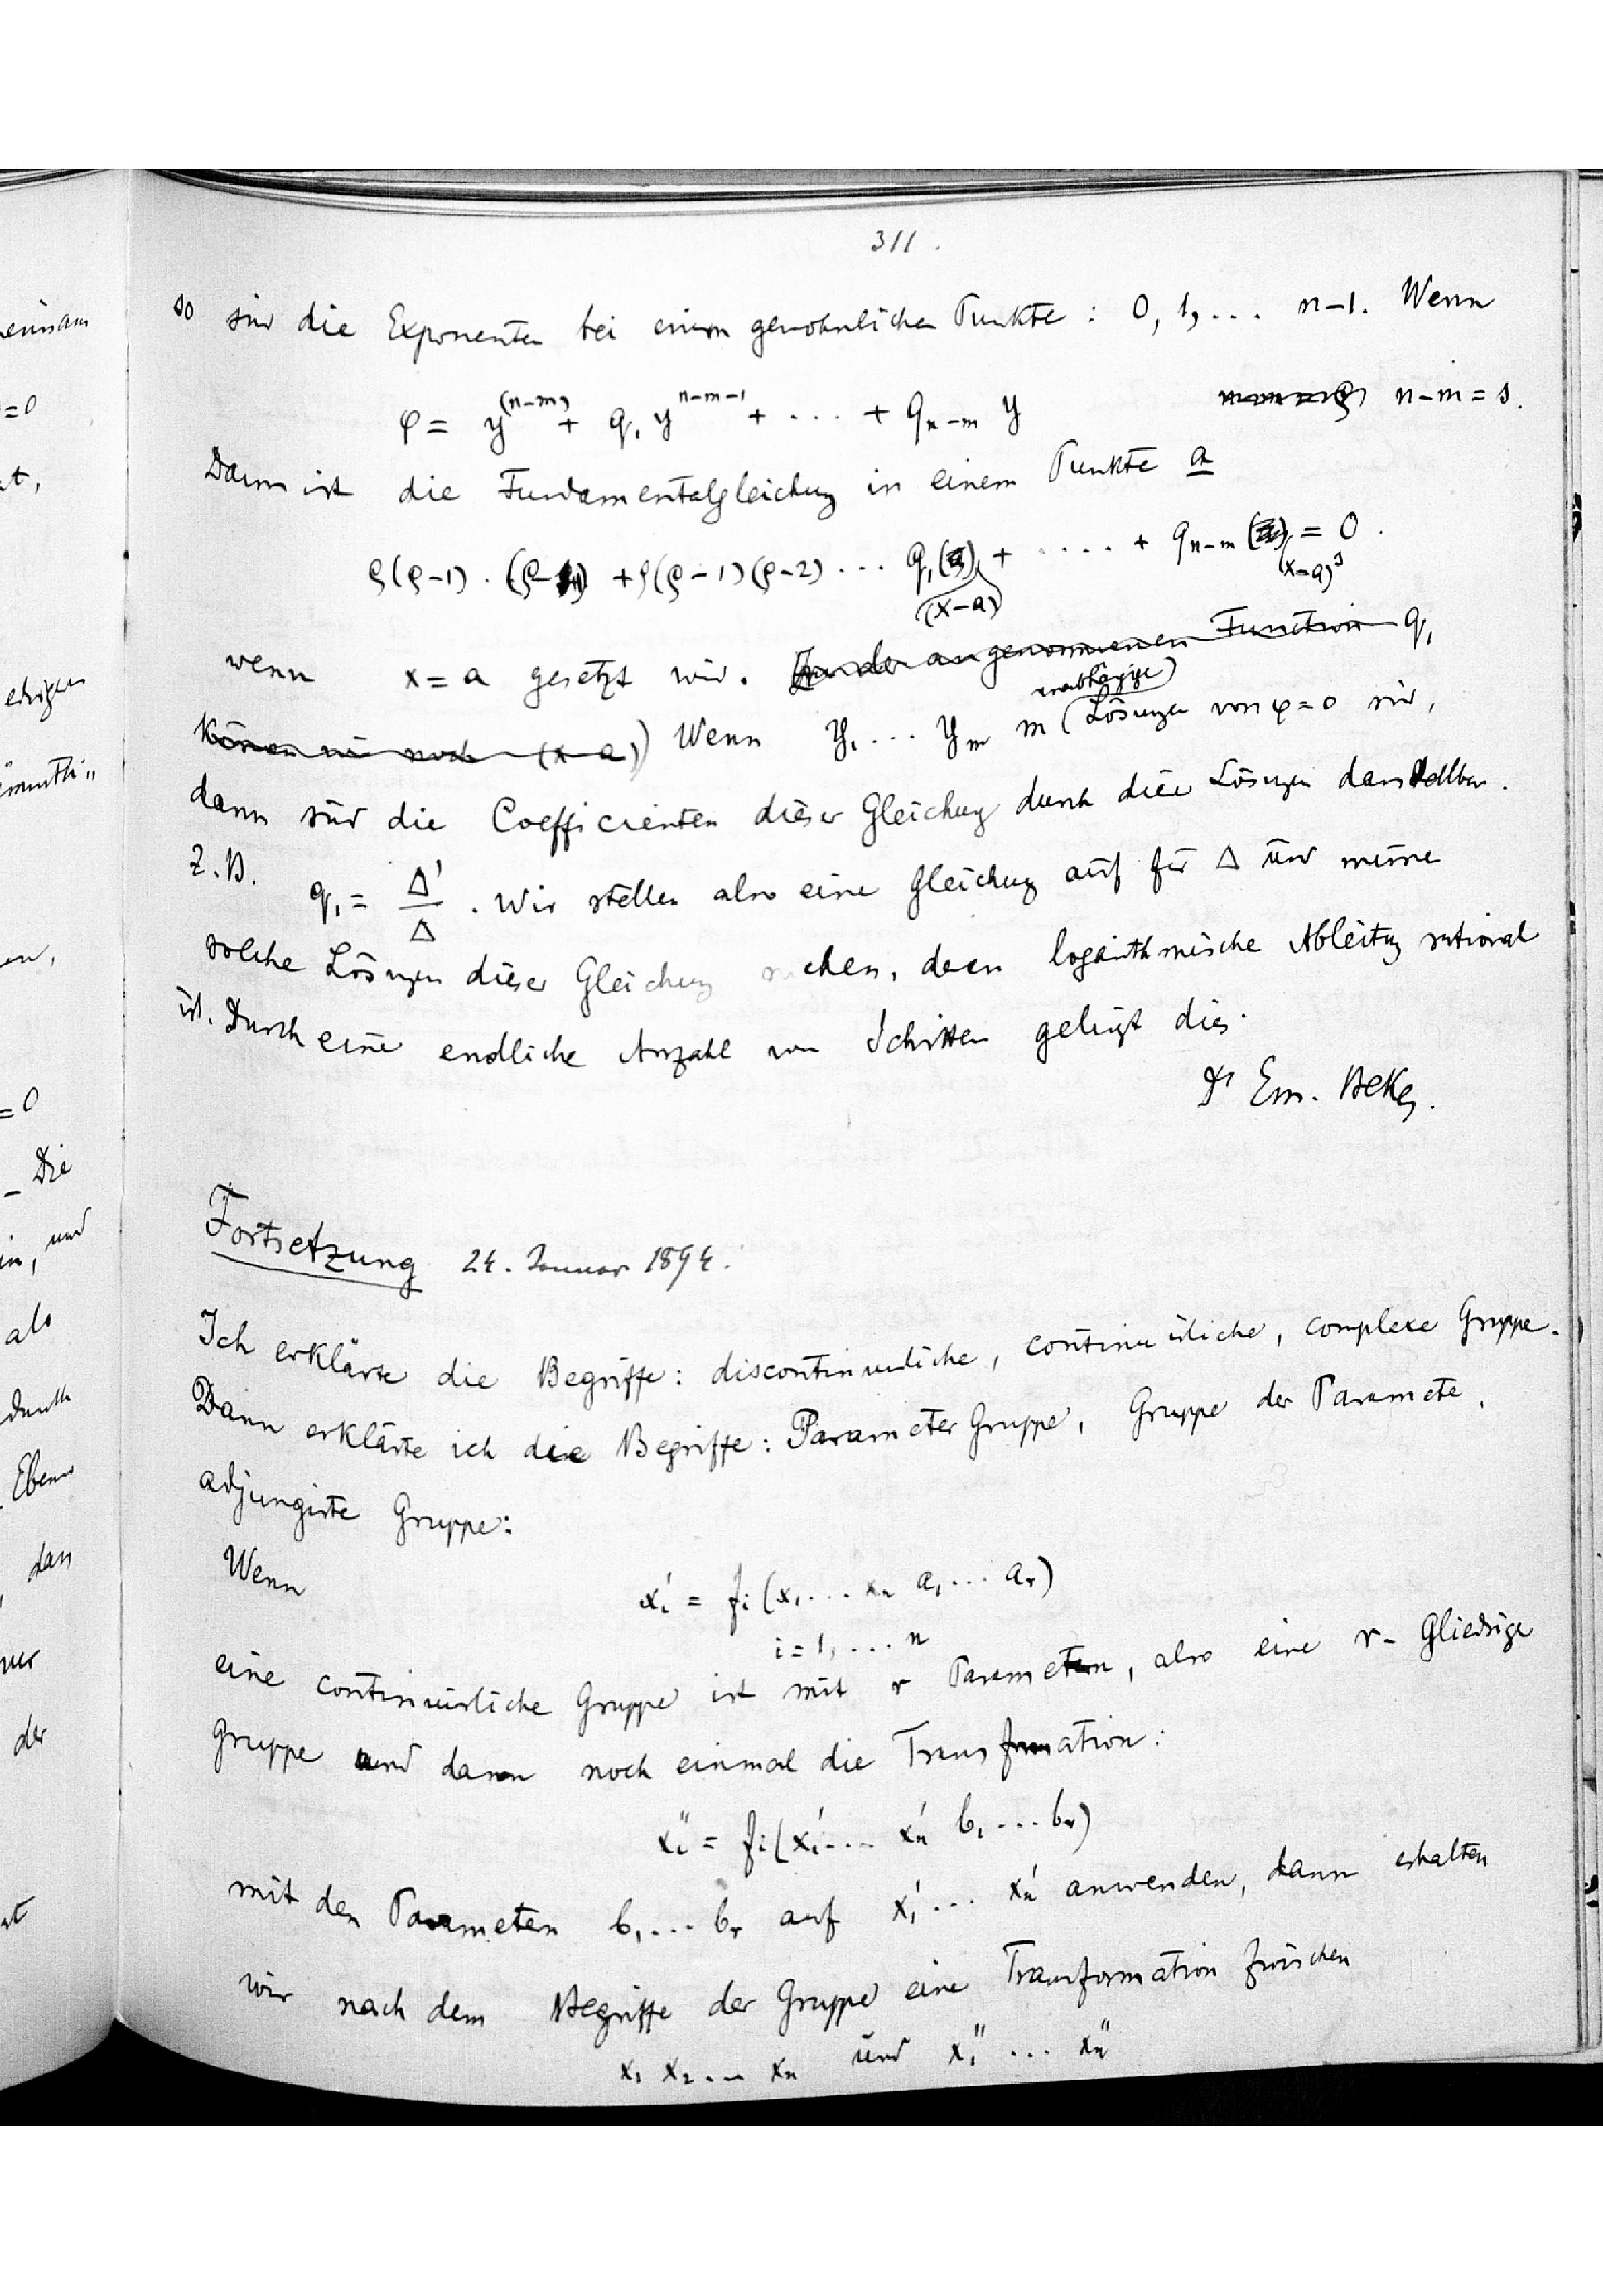 311.
so sind die Exponenten bei einem gewöhnlichen Punkte: 0, 1, ... n-1. Wenn
φ = y^(n-m) + q₁ y^n-m-1 + ... + q_n-m y   n-m = s.
Dann ist die Fundamentalgleichung in einem Punkte a
ρ(ρ-1) . (ρ- ) + ρ(ρ-1)(ρ-2) ... q₁( ) + ..... + q_n-m ( ) = 0.
(x-a) (x-a)^s
wenn x = a gesetzt wird. In der angenommenen Function q₁
unabhängige
können wir noch (x-a) Wenn y₁ ... y_m m Lösungen von φ=0 sind,
dann sind die Coefficienten dieser Gleichung durch diese Lösungen darstellbar.
Z.B. q₁ = Δ'/Δ. Wir stellen also eine Gleichung auf für Δ und
solche Lösungen dieser Gleichung suchen, deren logarithmische Ableitung rational
ist. Durch eine endliche Anzahl von Schritten gelingt dies.
Dr Em. Beke.
Fortsetzung 24. Januar 1894.
Ich erklärte die Begriffe: discontinuirliche, continuirliche, complexe Gruppe.
Dann erklärte ich die Begriffe: Parameter Gruppe, Gruppe der Paramete,
adjungirte Gruppe:
Wenn
x_i' = f_i (x₁ ... x_n a₁ ... a_r)
i = 1, ... n
eine continuirliche Gruppe ist mit r Parametern, also eine r-Gliedrige
Gruppe und dann noch einmal die Transformation:
x_i'' = f_i (x₁' ... x_n' b₁ ... b_r)
mit den Parametern b₁ ... b_r auf x₁' ... x_n' anwenden, dann erhalten
wir nach dem Begriffe der Gruppe eine Transformation zwischen
x₁ x₂ ... x_n und x₁'' ... x_n''